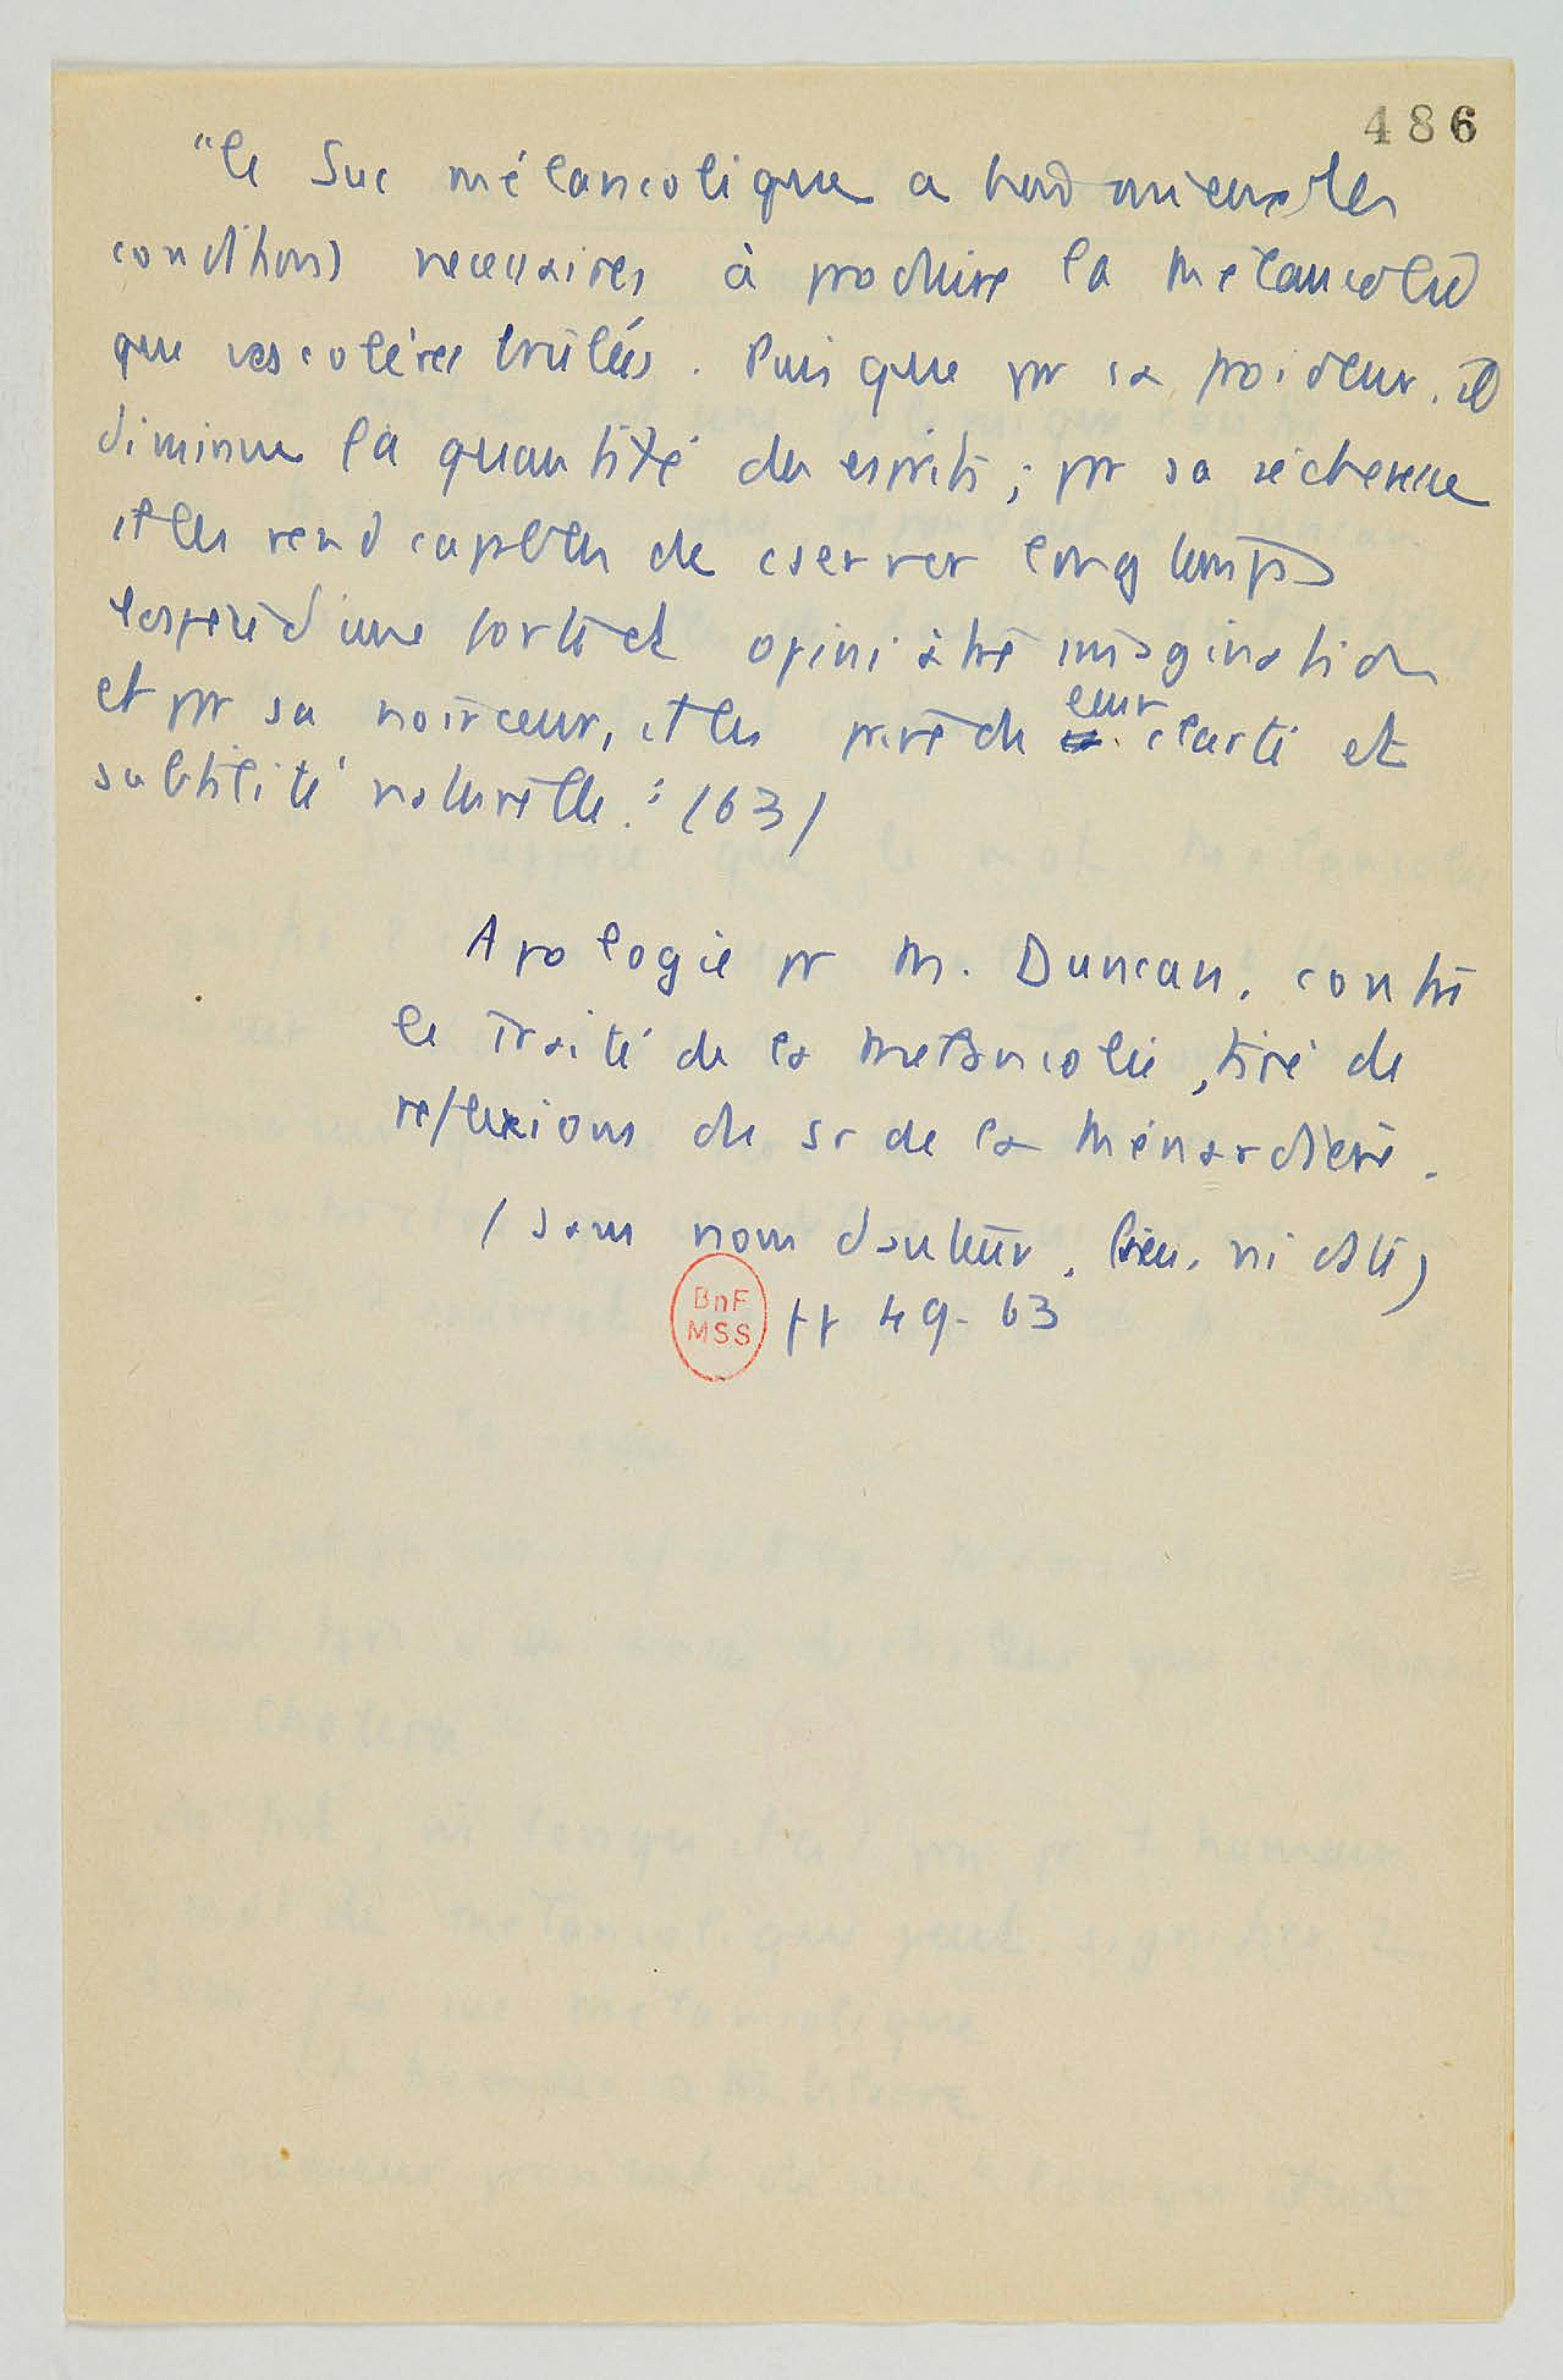 486
"le Suc mélancolique a bien mieux les
conditions necessaires à produire la mélancolie
que ces colères brulées. Puis que pr sa froideur, il
diminue la quantité des esprits ; pr sa sécheresse
il les rend capables de cserver longtemps
l'espèce d'une forte et opiniâtre imagination
et pr sa noirceur, il les prive de leur clarté et
subtilité naturelle." (63)
Apologie pr M. Duncan, contre
le Traité de la Mélancolie, tiré de
reflexions du sr de la Ménardière.
(sans nom d'auteur, lieu, ni date)
BnF
MSS
pp 49-63